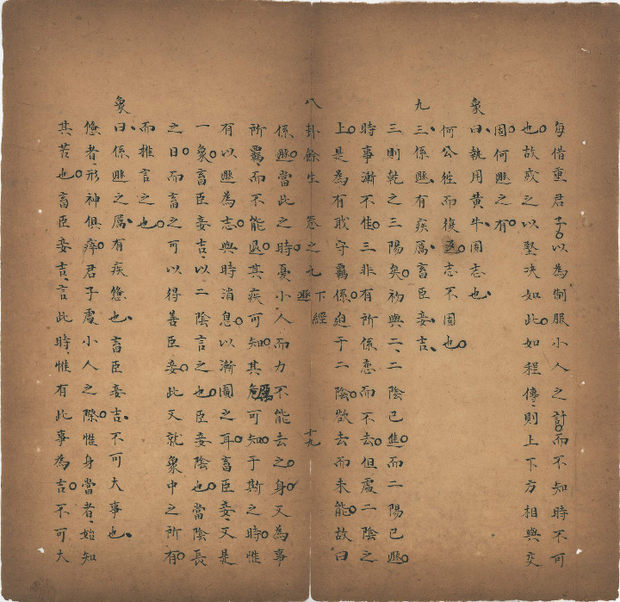 每借重君子以為制服小人之計而不知時不可
也故戒之以堅决如此如程傳則上下方相與交
固何遯之有
象曰執用黃牛固志也
何公雖而復 志不固也
九三係遯有疾厲畜臣妾吉
三則乾之三陽矣初與二二陰已進而二陽已遯
時事漸不佳三非有所係戀而不去但處二陰之
上是為有我守羈係迫于二陰欲去而未能故曰
八卦餘生 卷之九 下經 遯 十九
係遯當此之時憂小人而力不能去之身又為事
所羈而不能退其疾可知其危厲可知于斯之時惟
有以遯為志與時消息以漸圖之耳畜臣妾又是
一象畜臣妾吉以二陰言之也臣妾陰也當陰長
之日而畜之可以得善臣妾此又就象中之所有
而推言之也
象曰係遯之厲有疾憊也畜臣妾吉不可大事也
憊者形神俱瘁君子處小人之際惟身當者始知
其苦也畜臣妾吉言此時惟有此事為吉不可大